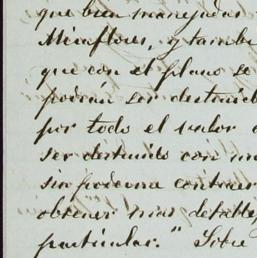 que bien manejadas
Miraflores, y tambi
que con el plano se
podrán ser destruid
por todo el valor
ser destruido con
sin poderse contraer
obtener mas detalles
particular." Este